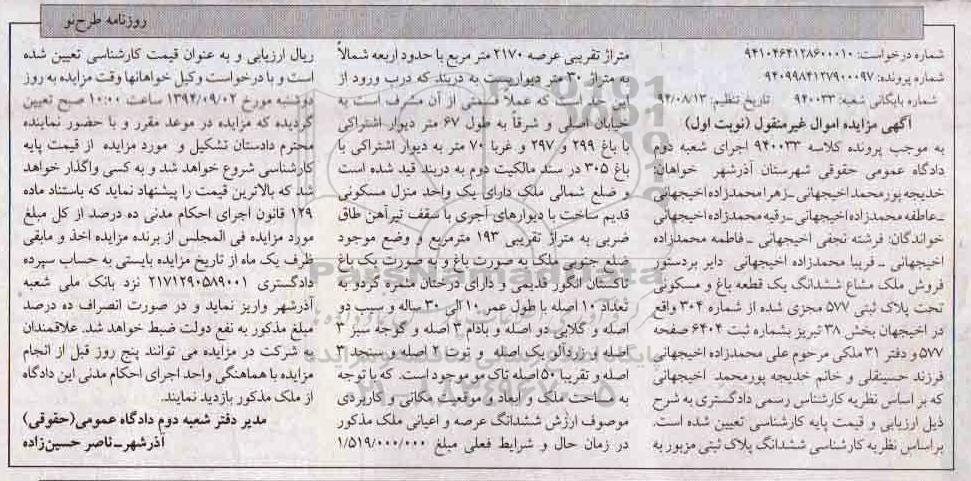 روزنامه طرح‌نو
شماره درخواست: ۹۴۱۰۴۶۴۱۲۸۶۰۰۰۱۰
شماره پرونده: ۹۴۰۹۹۸۴۱۲۷۹۰۰۰۹۷
شماره بایگانی شعبه: ۹۴۰۰۳۳ تاریخ تنظیم: ۹۴/۰۸/۱۳
آگهی مزایده اموال غیرمنقول (نوبت اول)
به موجب پرونده کلاسه ۹۴۰۰۳۳ اجرای شعبه دوم
دادگاه عمومی حقوقی شهرستان آذرشهر خواهان:
خدیجه پورمحمد اخیجهانی ـ زهرا محمدزاده اخیجهانی
ـ عاطفه محمدزاده اخیجهانی ـ رقیه محمدزاده اخیجهانی
خواندگان: فرشته نجفی اخیجهانی ـ فاطمه محمدزاده
اخیجهانی ـ فریبا محمدزاده اخیجهانی دایر بردستور
فروش ملک مشاع ششدانگ یک قطعه باغ و مسکونی
تحت پلاک ثبتی ۵۷۷ مجزی شده از شماره ۳۰۴ واقع
در اخیجهان بخش ۳۸ تبریز بشماره ثبت ۶۴۰۴ صفحه
۵۷۷ و دفتر ۳۱ ملکی مرحوم علی محمدزاده اخیجهانی
فرزند حسینقلی و خانم خدیجه پورمحمد اخیجهانی
که بر اساس نظریه کارشناس رسمی دادگستری به شرح
ذیل ارزیابی و قیمت پایه کارشناسی تعیین شده است.
براساس نظریه کارشناسی ششدانگ پلاک ثبتی مزبور به
متراژ تقریبی عرصه ۲۱۷۰ متر مربع با حدود اربعه شمالاً
به متراژ ۳۰ متر دیواریست به دربند که درب ورود از
این حد است که عملاً قسمتی از آن مشرف است به
خیابان اصلی و شرقاً به طول ۶۷ متر دیوار اشتراکی
با باغ ۲۹۹ و ۲۹۷ و غربا ۷۰ متر به دیوار اشتراکی با
باغ ۳۰۵ در سند مالکیت دوم به دربند قید شده است
و ضلع شمالی ملک دارای یک واحد منزل مسکونی
قدیم ساخت با دیوارهای آجری با سقف تیرآهن طاق
ضربی به متراژ تقریبی ۱۹۳ مترمربع و وضع موجود
ضلع جنوبی ملک به صورت باغ و به صورت یک باغ
تاکستان انگور قدیمی و دارای درختان مثمره گردو به
تعداد ۱۰ اصله با طول عمر ۱۰ الی ۳۰ ساله و سیب دو
اصله و گلابی دو اصله و بادام ۳ اصله و گوجه سبز ۳
اصله و زردآلو یک اصله و توت ۲ اصله و سنجد ۳
اصله و تقریبا ۵۰ اصله تاک مو موجود است. که با توجه
به مساحت ملک و ابعاد و موقعیت مکانی و کاربردی
موصوف ارزش ششدانگ عرصه و اعیانی ملک مذکور
در زمان حال و شرایط فعلی مبلغ ۱/۵۱۹/۰۰۰/۰۰۰
ریال ارزیابی و به عنوان قیمت کارشناسی تعیین شده
است و با درخواست وکیل خواهانها وقت مزایده به روز
دوشنبه مورخ ۱۳۹۴/۰۹/۰۲ ساعت ۱۰:۰۰ صبح تعیین
گردیده که مزایده در موعد مقرر و با حضور نماینده
محترم دادستان تشکیل و مورد مزایده از قیمت پایه
کارشناسی شروع خواهد شد و به کسی واگذار خواهد
شد که بالاترین قیمت را پیشنهاد نماید که باستناد ماده
۱۲۹ قانون اجرای احکام مدنی ده درصد از کل مبلغ
مورد مزایده فی المجلس از برنده مزایده اخذ و مابقی
ظرف یک ماه از تاریخ مزایده بایستی به حساب سپرده
دادگستری ۲۱۷۱۲۹۰۵۸۹۰۰۱ نزد بانک ملی شعبه
آذرشهر واریز نماید و در صورت انصراف ده درصد
مبلغ مذکور به نفع دولت ضبط خواهد شد. علاقمندان
به شرکت در مزایده می توانند پنج روز قبل از انجام
مزایده با هماهنگی واحد اجرای احکام مدنی این دادگاه
از ملک مذکور بازدید نمایند.
مدیر دفتر شعبه دوم دادگاه عمومی(حقوقی)
آذرشهر ـ ناصر حسین‌زاده
ParsNamadData